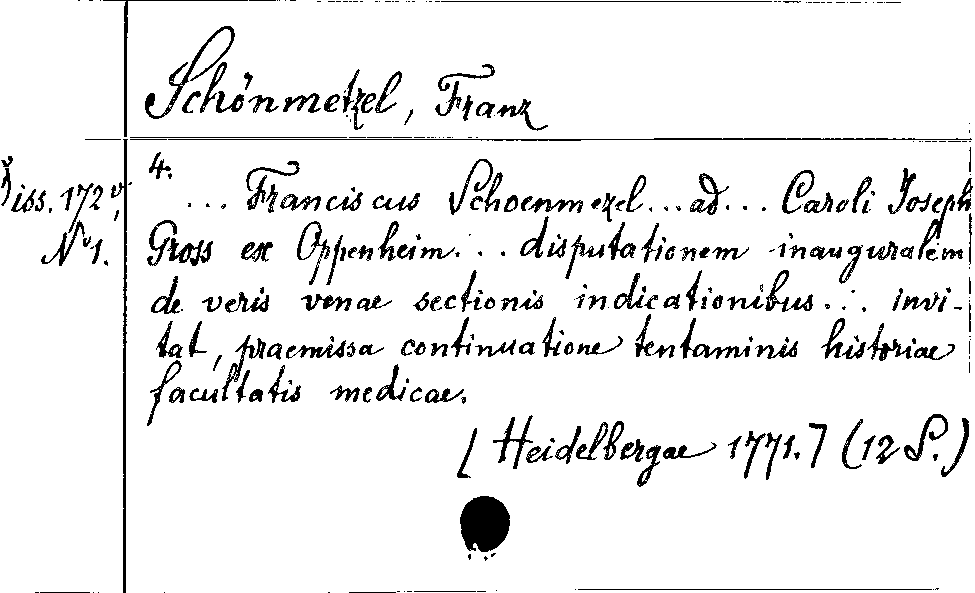 Schönmetzel, Franz
4.
Diss. 172 v,
N° 1.
... Franciscus Schoenmezel ... ad ... Caroli Joseph
Gross ex Oppenheim ... disputationem inauguralem
de veris venae sectionis indicationibus ... invi-
tat, praemissa continuatione tentaminis historiae
facultatis medicae.
[Heidelbergae 1771.] (12 S.)